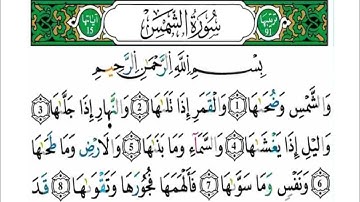 ترتيبها 91 سُورَةُ الشَّمْسِ آياتها 15
بِسْمِ اللَّهِ الرَّحْمَٰنِ الرَّحِيمِ
وَالشَّمْسِ وَضُحَاهَا (1) وَالْقَمَرِ إِذَا تَلَاهَا (2) وَالنَّهَارِ إِذَا جَلَّاهَا (3)
وَاللَّيْلِ إِذَا يَغْشَاهَا (4) وَالسَّمَاءِ وَمَا بَنَاهَا (5) وَالْأَرْضِ وَمَا طَحَاهَا
(6) وَنَفْسٍ وَمَا سَوَّاهَا (7) فَأَلْهَمَهَا فُجُورَهَا وَتَقْوَاهَا (8) قَدْ